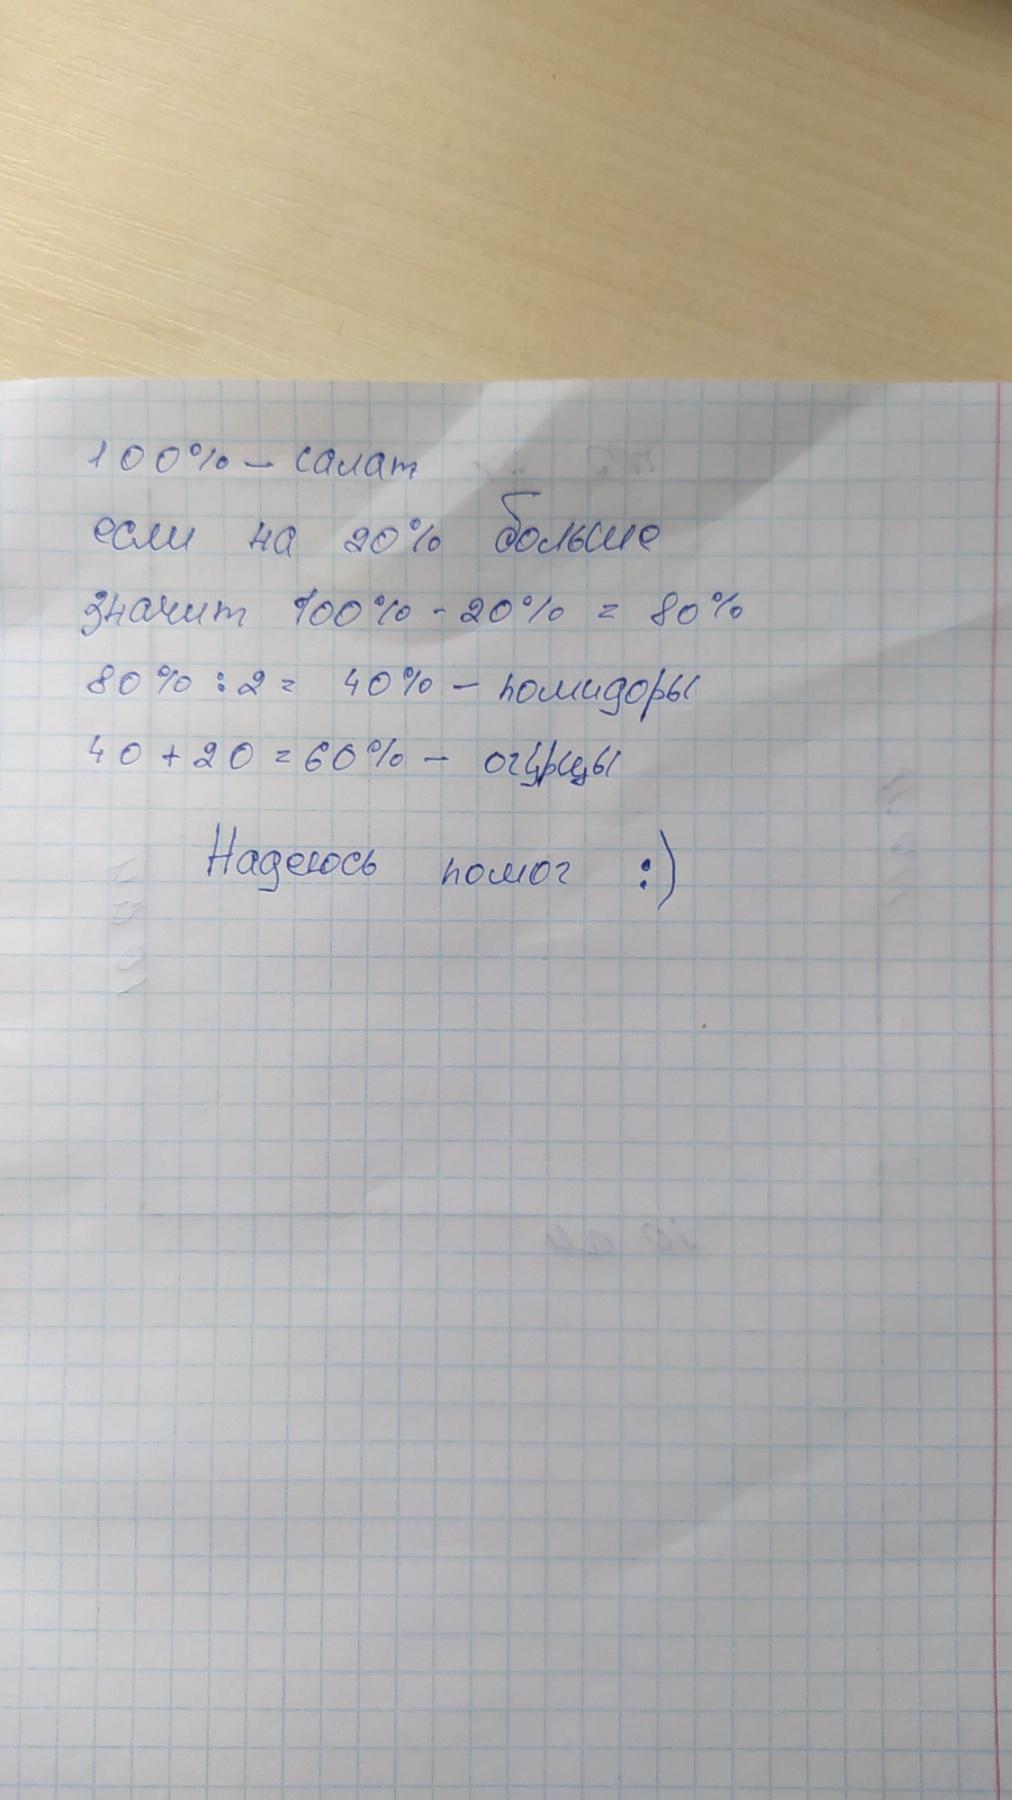 100% – салат
если на 20% больше
значит 100% - 20% = 80%
80% : 2 = 40% – помидоры
40 + 20 = 60% – огурцы
Надеюсь помог :)